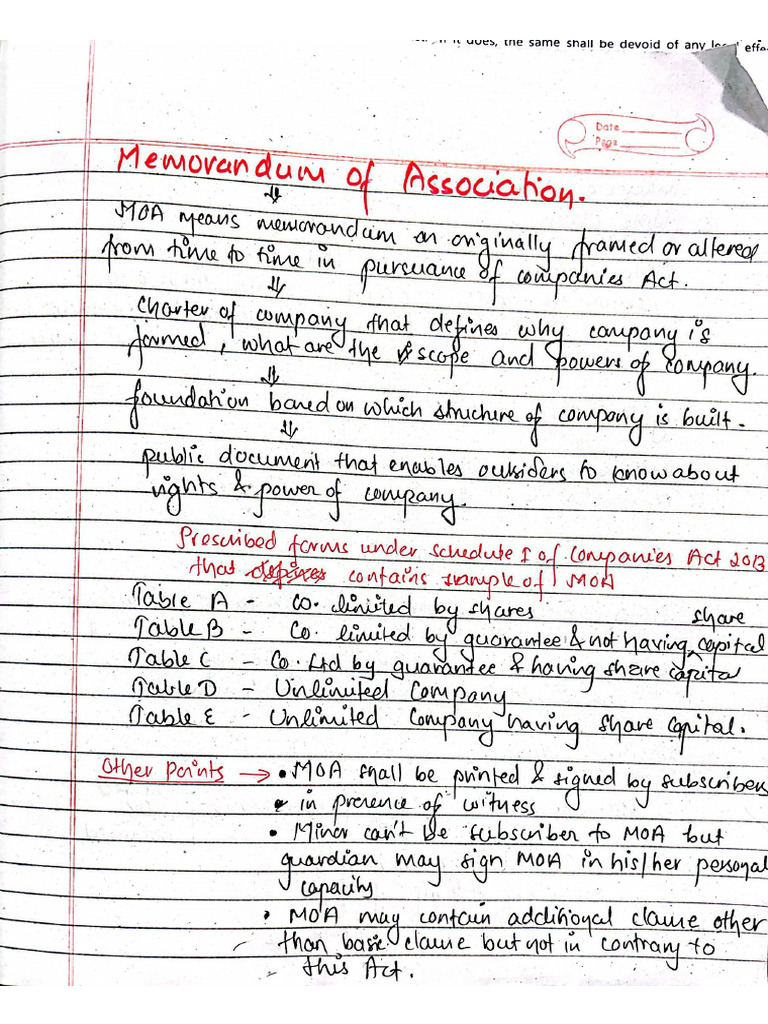 it does, the same shall be devoid of any
Date
Page
Memorandum of Association.
MOA means memorandum on originally framed or altered
from time to time in pursuance of companies Act.
charter of company that defines why company is
formed, what are the scope and powers of company.
foundation based on which structure of company is built.
public document that enables outsiders to know about
rights & power of company.
Prescribed forms under schedule I of Companies Act 2013
that contains sample of MOA
Table A - Co. limited by shares
Table B - Co. limited by guarantee & not having share capital
Table C - Co. Ltd by guarantee & having share capital
Table D - Unlimited Company
Table E - Unlimited Company having share capital.
Other Points → • MOA shall be printed & signed by subscribers
in presence of witness
• Minor can't be subscriber to MOA but
guardian may sign MOA in his/her personal
capacity
• MOA may contain additional clause other
than basic clause but not in contrary to
this Act.